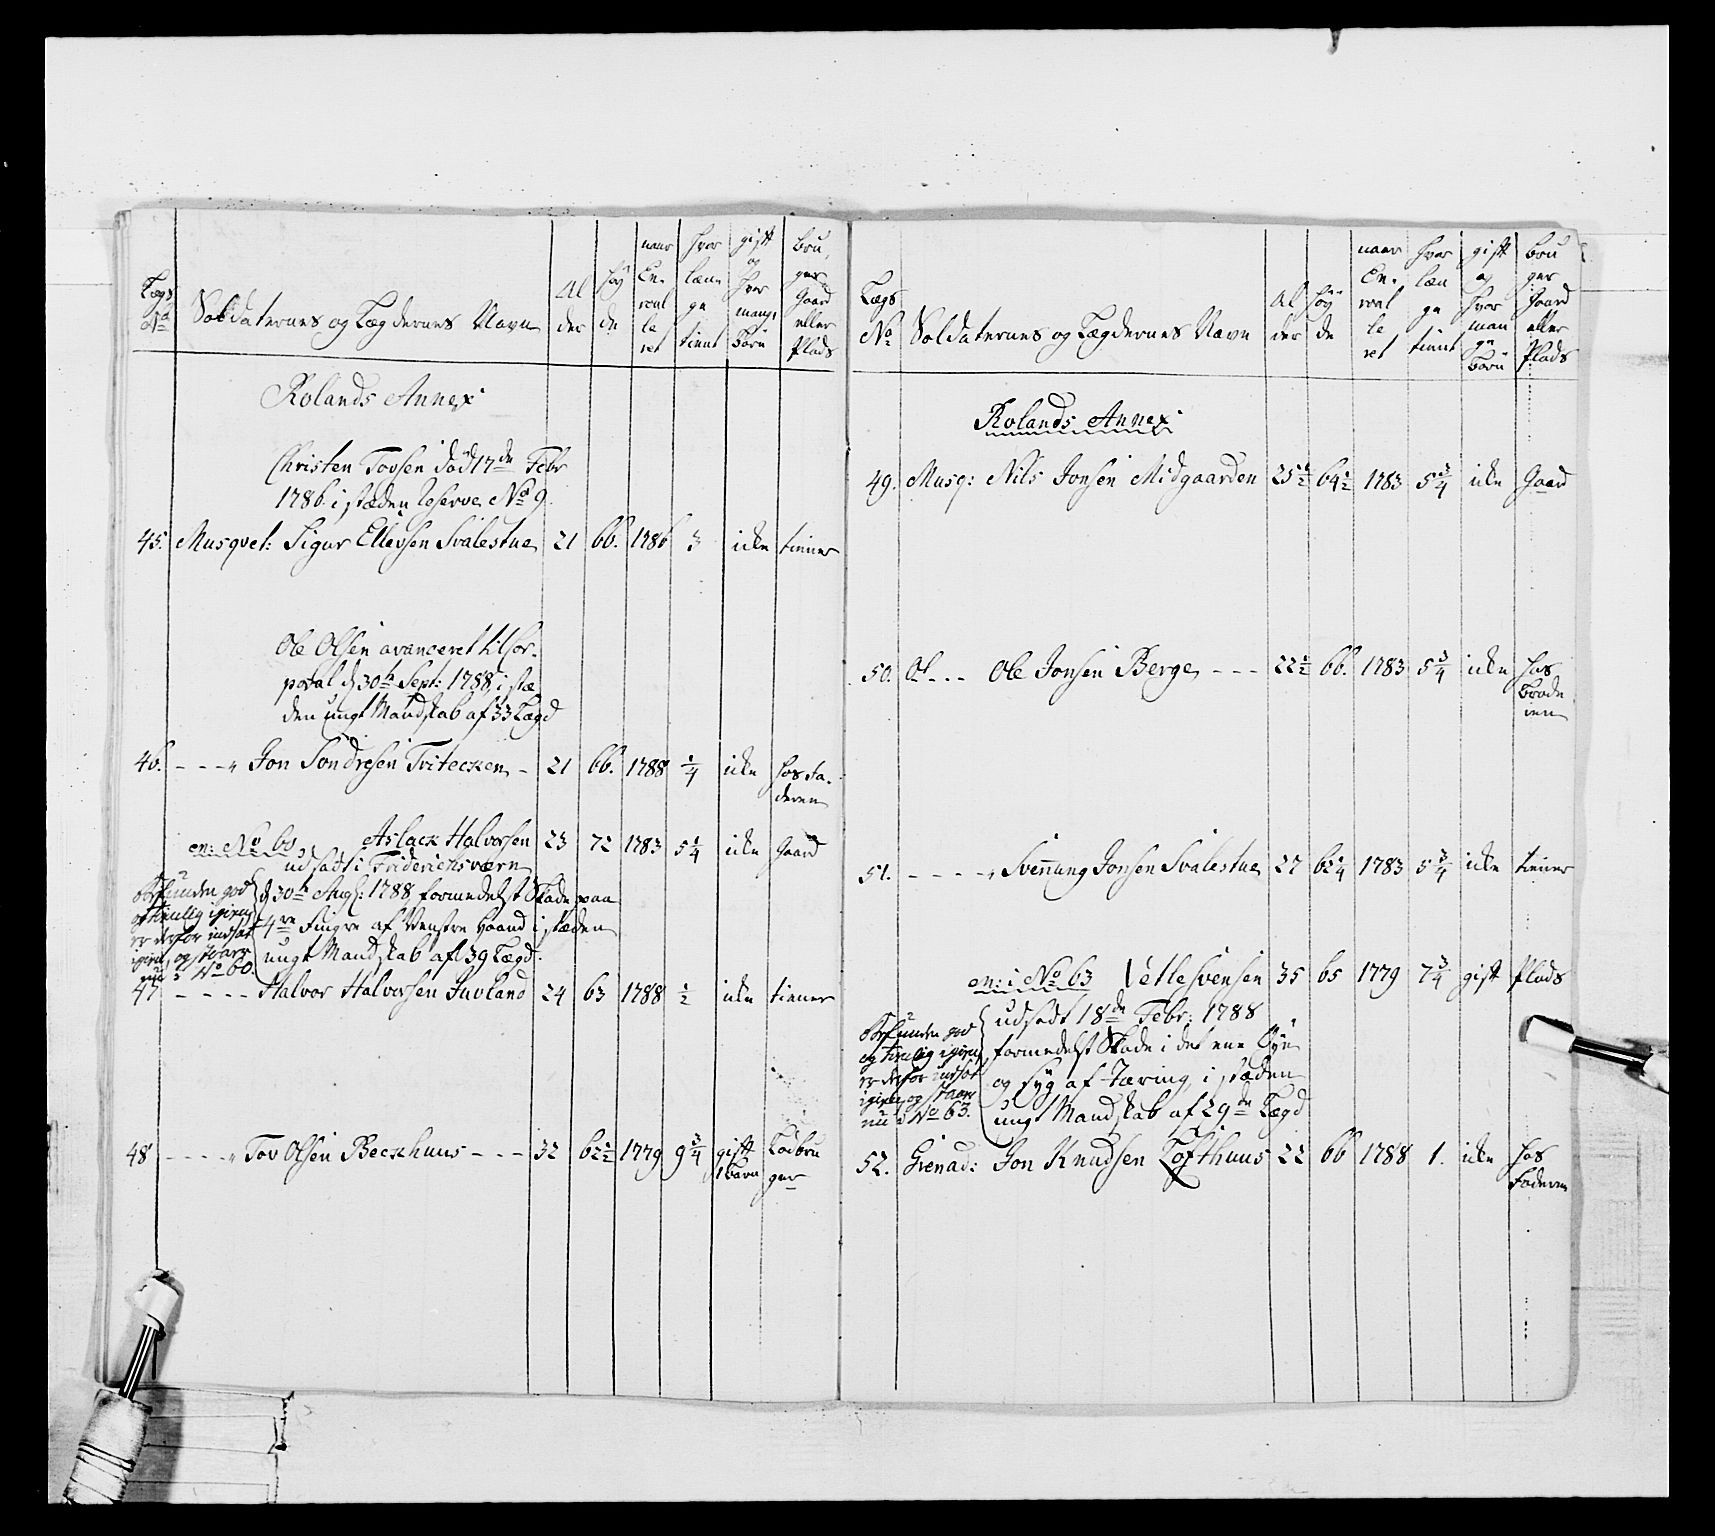 Lægs
No
Soldaternes og Lægdernes Navn
Al
der
Høy
de
naar
En-
roul
le
ret
hvor
læn
ge
tient
gift
og
hvor
mange
Børn
bru,
ger
Gaard
eller
Plads
Rolands Annex
Christen Tovsen død 17de Febr
1786. i stæden reserve No 9.
45. Musqvet: Sigur Ellevsen Svalestue 21 66. 1786 3 icke tiener
Ole Olsen avanceret til Cor-
poral d 30te Sept: 1788, i stæ
den ungt Mandskab af 33 Lægd
46. - - - " Jon Sondresen Tvitecken - 21 66. 1788 1/4 icke hos Fa-
deren
en: No 60 Aslack Halvorsen 23 72 1783 5 1/4 icke Gaard
udsadt i Friderichsværn
d 30te Aug: 1788 formedelst Skade paa
4re Fingre af Venstre Haand i stæden
ungt Mandskab af 39 Lægd.
Befunden god
og tienlig igien,
er derfor indsat
igien, og staar
nu i No 60.
47 - - - - Halvor Halvorsen Juvland 24 63 1788 1/2 icke tiener
48 - - - - " Tov Olsen Beckhuus - - - 32 62 1/2 1779 9 3/4 gift Lodbru
1 Barn ger
Lægs
No
Soldaternes og Lægdernes Navn
Al
der
Høy
de
naar
En-
roul
le
ret
hvor
læn
ge
tient
gift
og
hvor
man
ge
Børn
bru
ger
Gaard
eller
Plads
Rolands Annex
49. Musq: Nils Jonsen Midgaarden 25 1/2 64 1/2 1783 5 3/4 icke Gaard
50. Dt - - - Ole Jonsen Berge - - - 22 1/2 66. 1783 5 3/4 icke hos
Brode
ren
51. - - - - " Svennung Jonsen Svalestue 27 62 1/4 1783 5 3/4 icke tiener
en: i No 63 Vetle Svensen 35 65 1779 7 3/4 gift Plads
udsadt 18de Febr: 1788
formedelst Skade i det ene Øye
og syg af Tæring, i stæden
ungt Mandskab af 29de Lægd
Befunden god
og tienlig igien,
er derfor indsat
igien og staar
nu i No 63.
52. Grenad: Jon Knudsen Lofthuus 22 66 1788 1. icke hos
Faderen